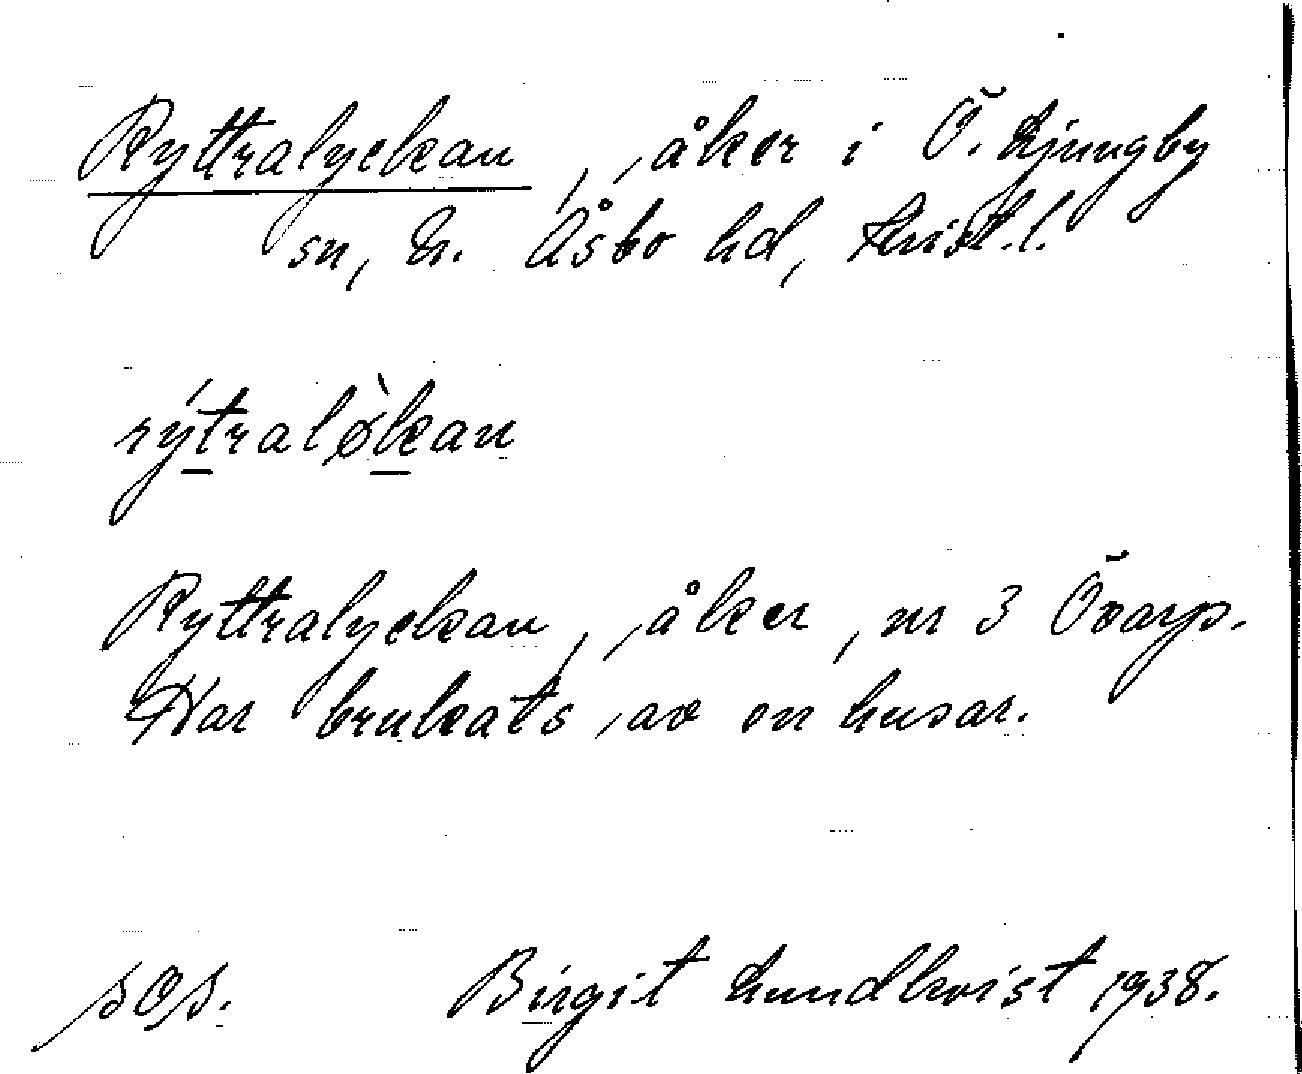 Ryttralyckan, åker i Ö. Ljungby
sn, N. Åsbo hd, Krist. l.
rýtralø̀kan
Ryttralyckan, åker, nr 3 Övarp.
Har brukats av en husar.
sOs.
Birgit Lundkvist 1938.